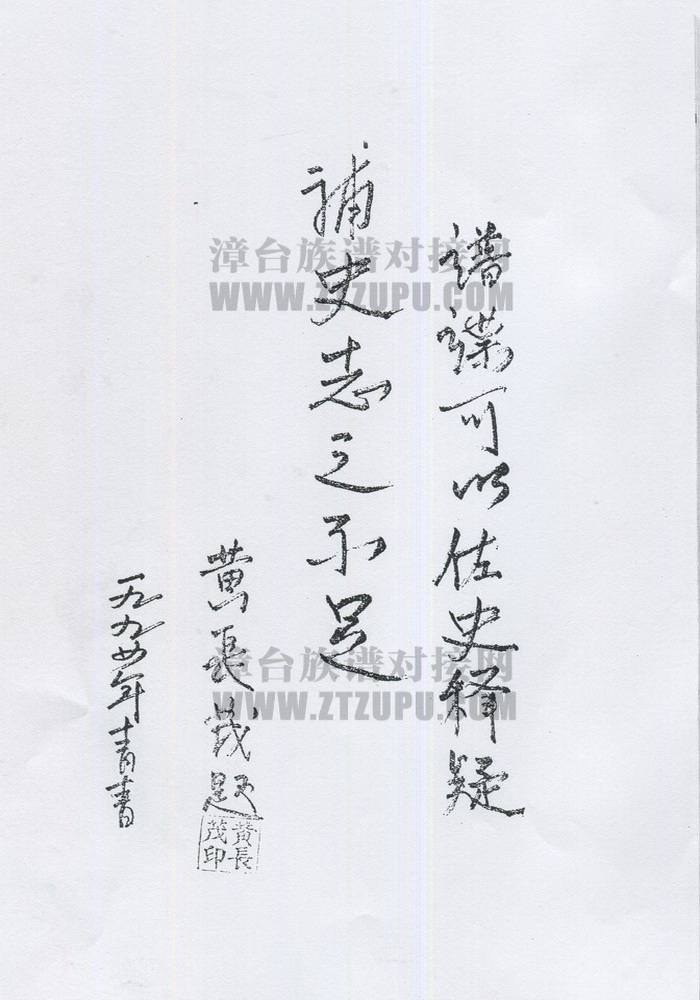 譜諜可以佐史释疑
補史志之不足
黄長茂题
黃長茂印
一九九年書
漳台族谱对接网
WWW.ZTZUPU.COM
漳台族谱对接网
WWW.ZTZUPU.COM